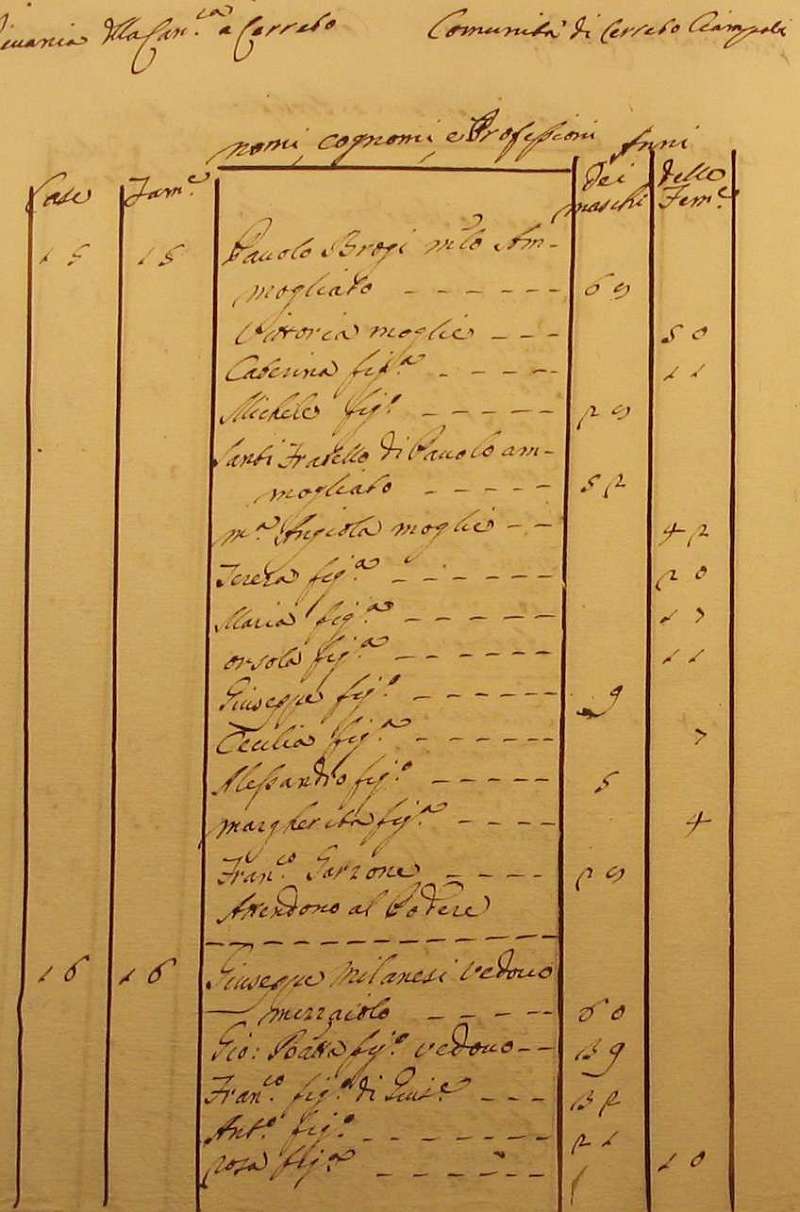 della Can.ia a Cerreto Comunità di Cerreto Ciampoli
nomi, cognomi, e Professioni Anni
Case Fam.e dei maschi delle Fem.e
15 15 Pavolo Brogi m.lo Am-
mogliato - - - - - - 69
Vittoria moglie - - - 50
Caterina fig.a - - - - - 11
Michele fig.o - - - - - 29
Santi Fratello di Pavolo am-
mogliato - - - - - 52
m.a Angiola moglie - - 42
Tereza fig.a - - - - - - 20
Maria fig.a - - - - - 17
orsola fig.a - - - - - - 11
Giuseppe fig.o - - - - - 9
Cecilia fig.a - - - - - 7
Alessandro fig.o - - - - - 5
margherita fig.a - - - - 4
Fran.co Garzone - - - - 29
Attendono al Podere
16 16 Giuseppe Milanesi vedovo
mezzaiolo - - - - - 60
Gio: Batta fig.o vedovo - - 39
Fran.co fig.o di Gius.e - - - 32
Ant.o fig.o - - - - - - - 21
rosa fig.a - - - - - - 10